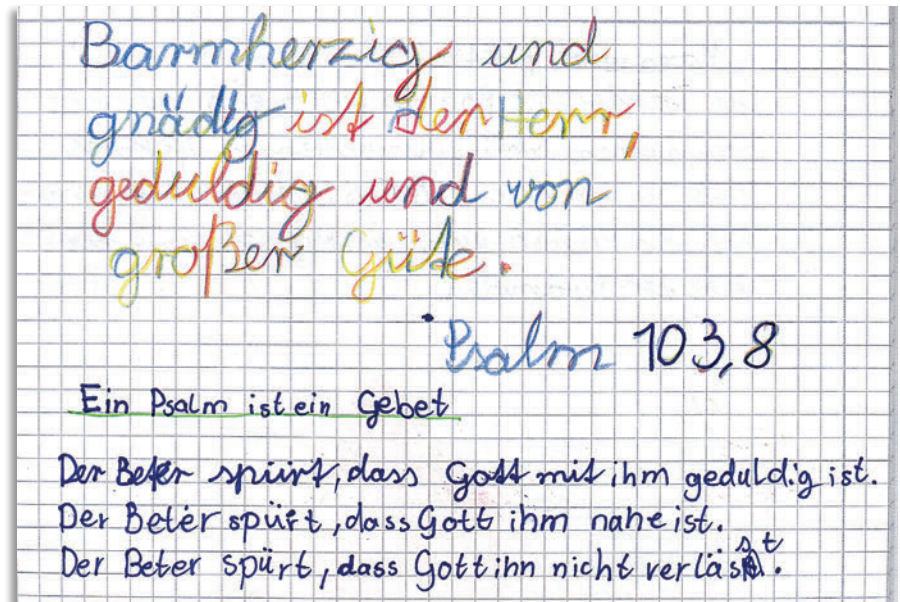 Barmherzig und
gnädig ist der Herr,
geduldig und von
großer Güte.
Psalm 103,8
Ein Psalm ist ein Gebet
Der Beter spürt, dass Gott mit ihm geduldig ist.
Der Beter spürt, dass Gott ihm nahe ist.
Der Beter spürt, dass Gott ihn nicht verlässt.